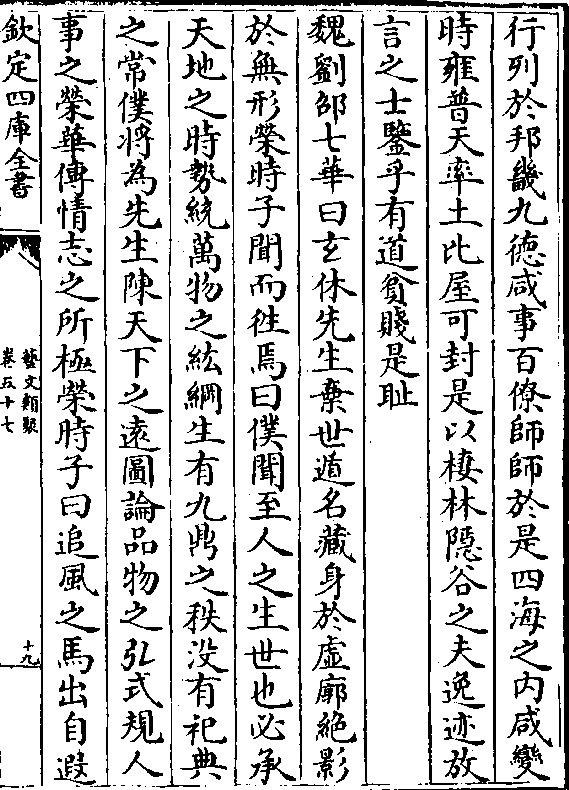 行列於邦畿九德咸事百僚師師於是四海之内咸變
時雍普天率土比屋可封是以棲林隱谷之夫逸迹放
言之士鑒乎有道貧賤是耻
魏劉邵七華曰玄休先生棄世遁名藏身於虚廓絶影
於無形榮時子聞而徃焉曰僕聞至人之生世也必承
天地之時勢統萬物之紘綱生有九鼎之秩没有祀典
之常僕將為先生陳天下之遠圖論品物之弘式規人
事之榮華傳情志之所極榮時子曰追風之馬出自遐
欽定四庫全書
藝文類聚
卷五十七
十九